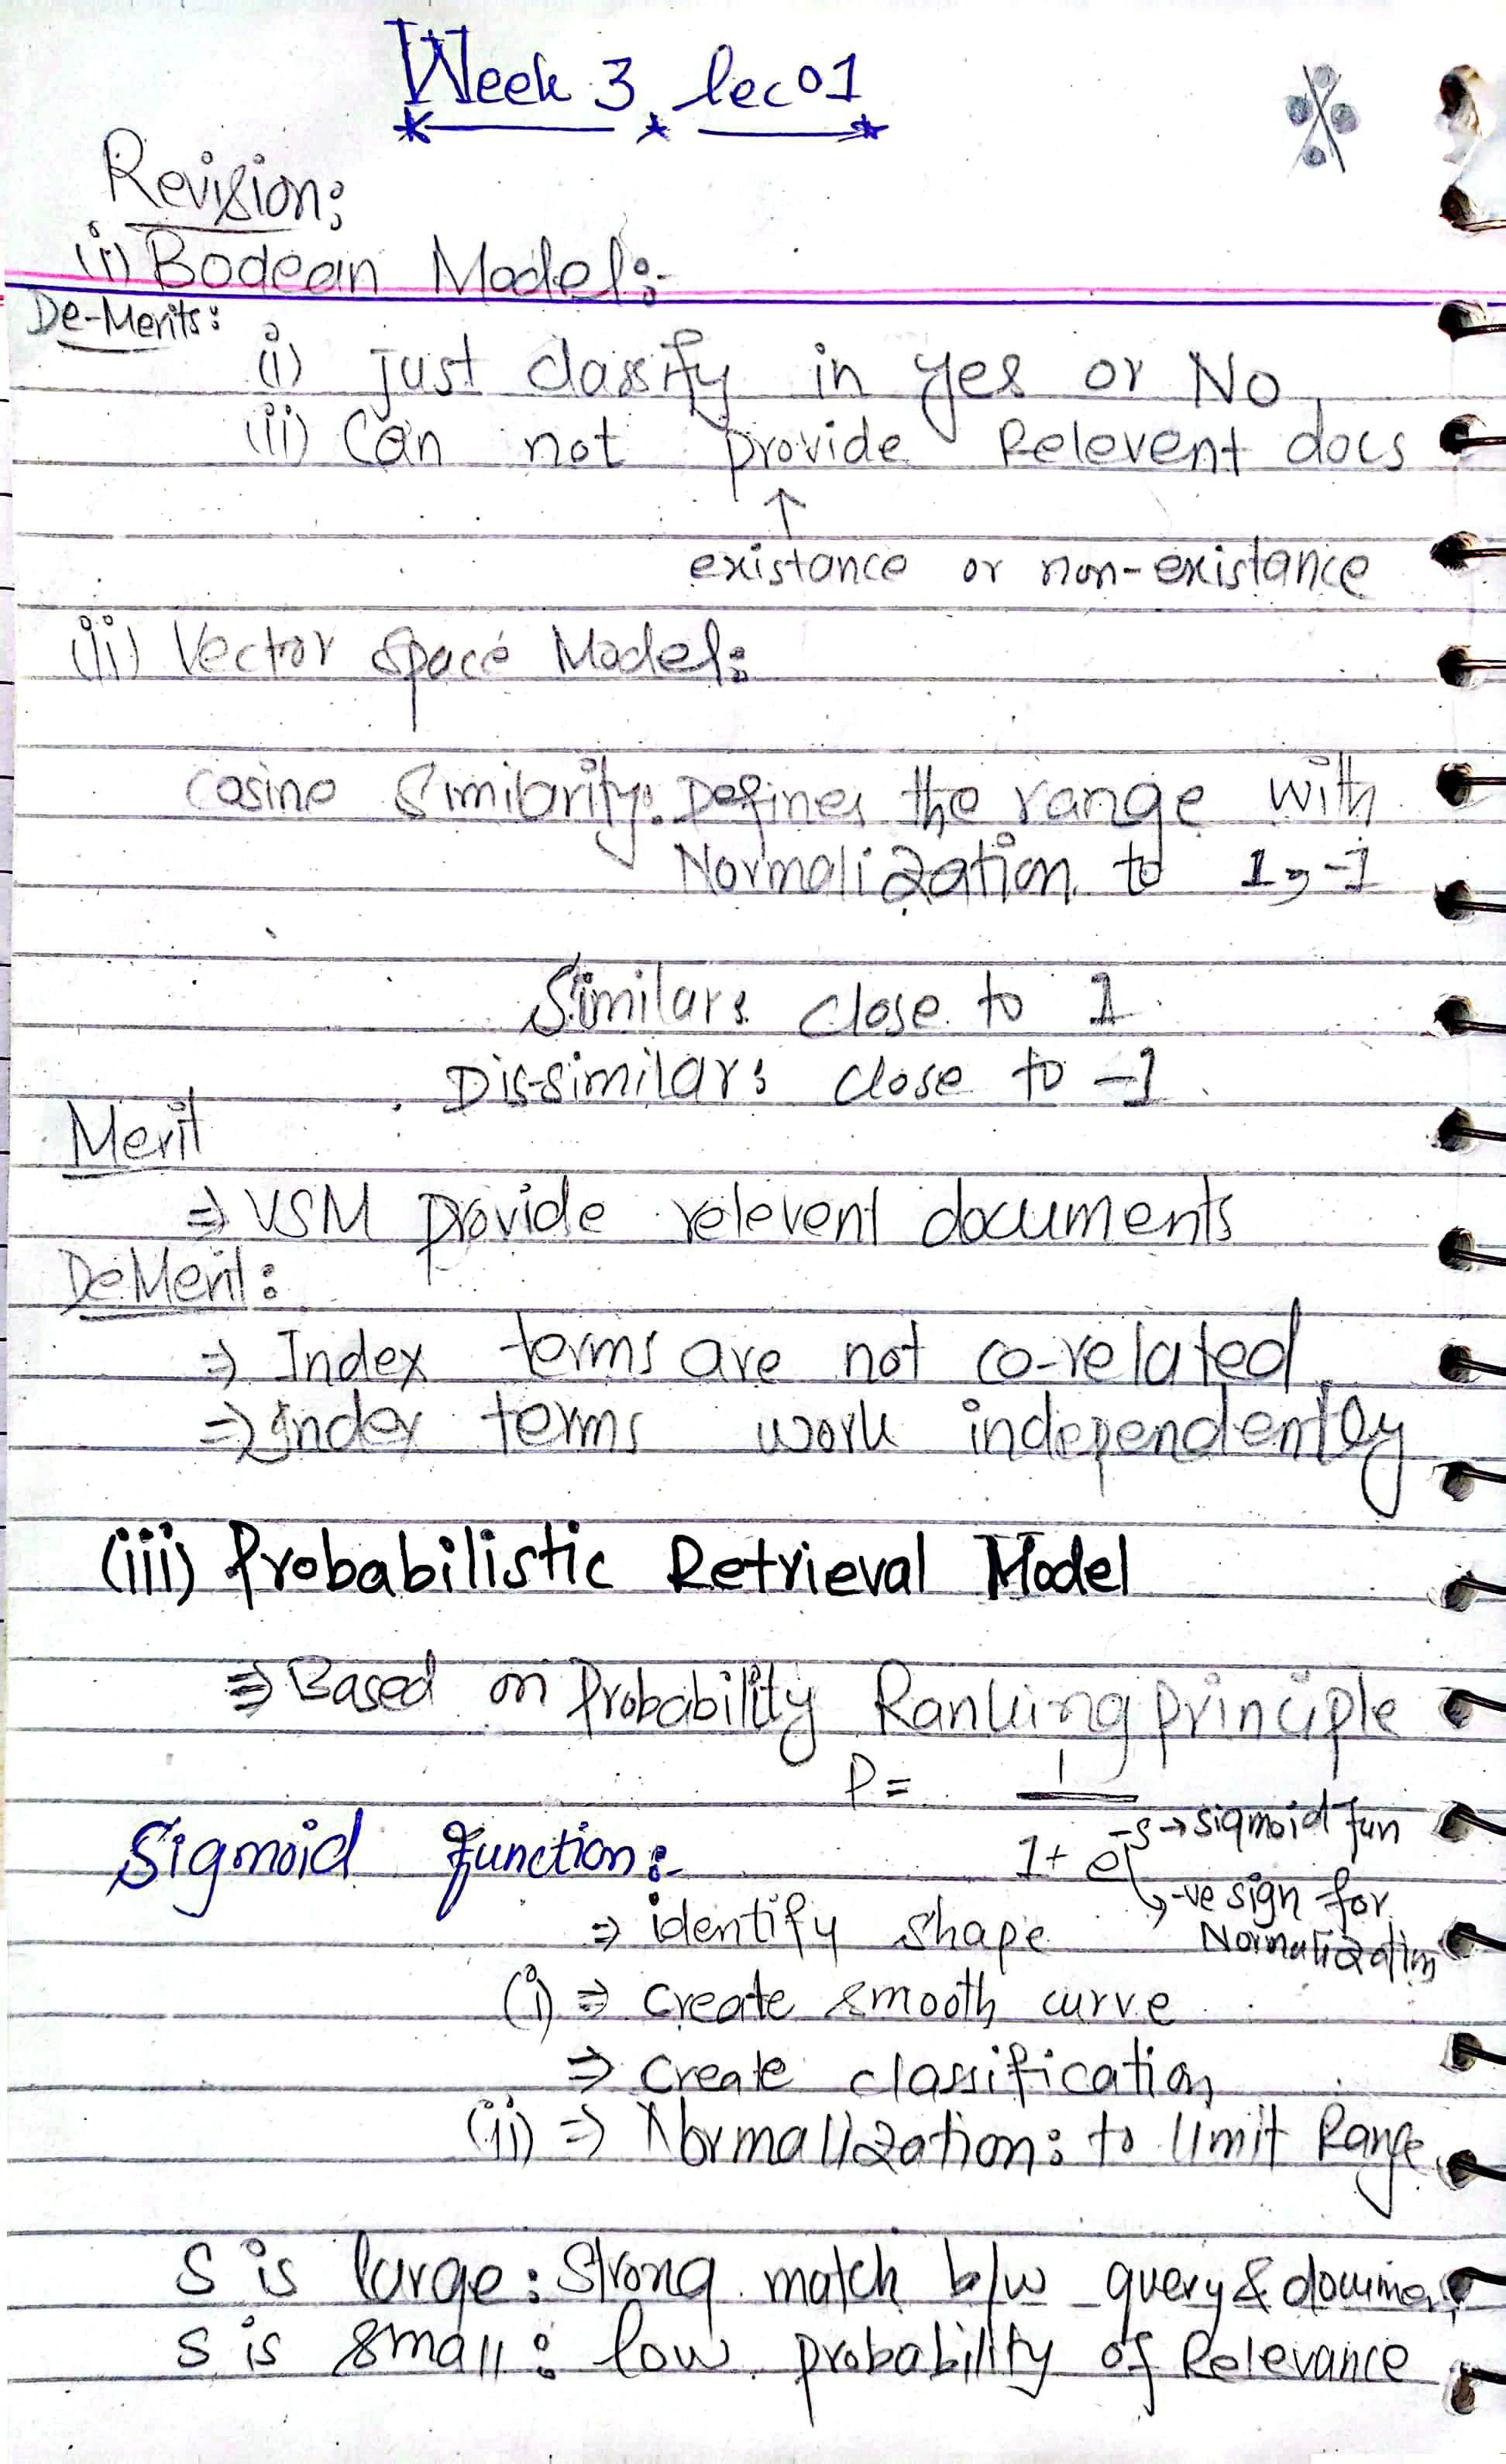 Week 3 lec 01
Revision:
(i) Boolean Model:-
De-Merits:
(i) just classify in yes or No
(ii) Can not provide Relevent docs
↑
existance or non-existance
(ii) Vector Space Model:
Cosine Similarity: Defines the range with
Normalization to 1, -1
Similar: close to 1
Dis-similar: close to -1.
Merit
⇒ VSM provide relevent documents
DeMerit:
⇒ Index terms are not co-related.
⇒ Index terms work independently
(iii) Probabilistic Retrieval Model
⇒ Based on Probability Ranking principle
P = 1
1 + e^-s → sigmoid fun
Sigmoid function:-
↳ -ve sign for
Normalization
⇒ identify shape
(i) ⇒ create smooth curve
⇒ create classification
(ii) ⇒ Normalization: to limit Range
S is large: Strong match b/w query &
S is small: low probability of Relevance